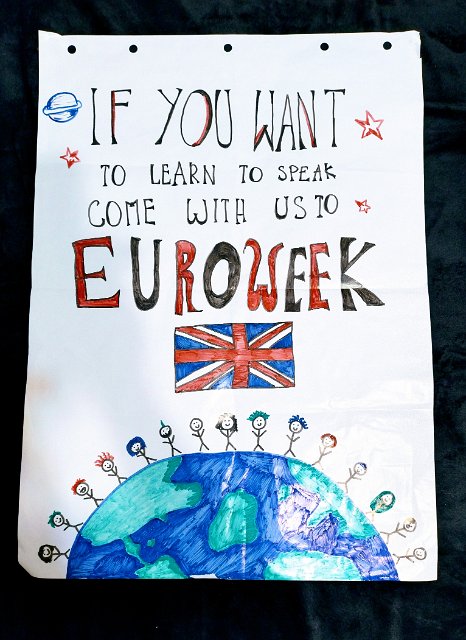 IF YOU WANT
TO LEARN TO SPEAK
COME WITH US TO
EUROWEEK